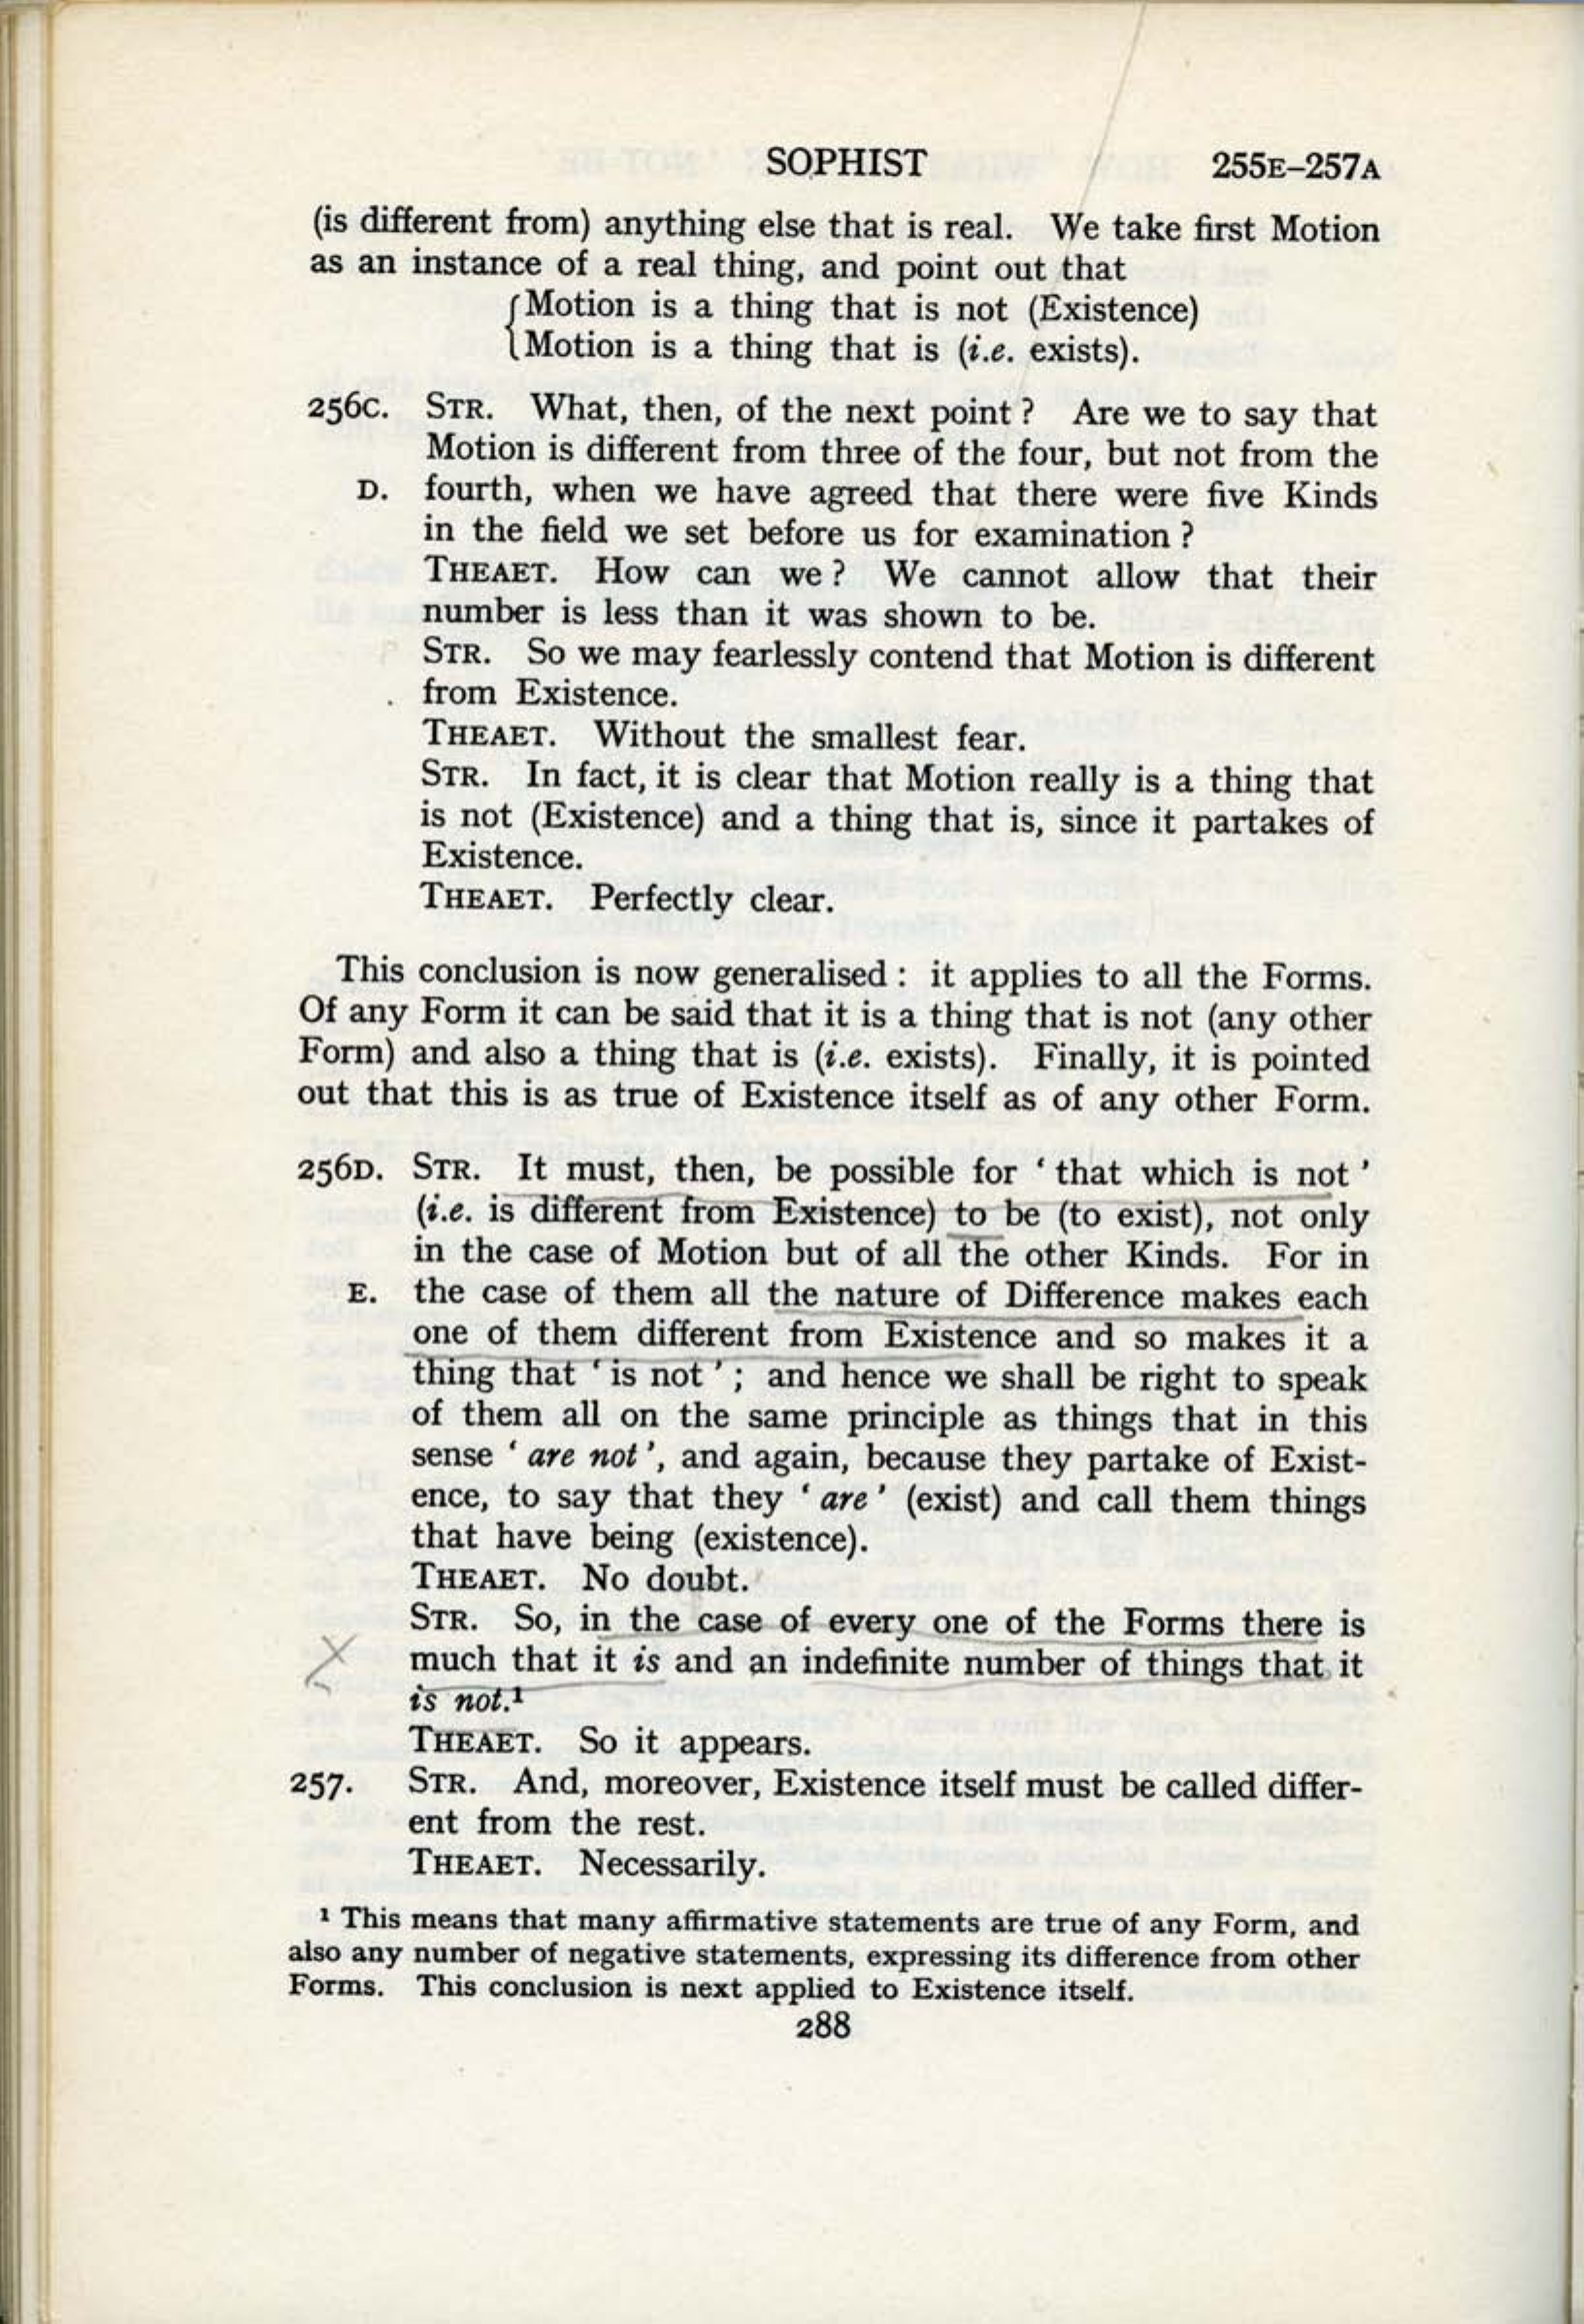 SOPHIST 255E–257A
(is different from) anything else that is real. We take first Motion
as an instance of a real thing, and point out that
{Motion is a thing that is not (Existence)
Motion is a thing that is (i.e. exists).
256C. STR. What, then, of the next point? Are we to say that
Motion is different from three of the four, but not from the
D. fourth, when we have agreed that there were five Kinds
in the field we set before us for examination?
THEAET. How can we? We cannot allow that their
number is less than it was shown to be.
STR. So we may fearlessly contend that Motion is different
from Existence.
THEAET. Without the smallest fear.
STR. In fact, it is clear that Motion really is a thing that
is not (Existence) and a thing that is, since it partakes of
Existence.
THEAET. Perfectly clear.
This conclusion is now generalised: it applies to all the Forms.
Of any Form it can be said that it is a thing that is not (any other
Form) and also a thing that is (i.e. exists). Finally, it is pointed
out that this is as true of Existence itself as of any other Form.
256D. STR. It must, then, be possible for ‘that which is not’
(i.e. is different from Existence) to be (to exist), not only
in the case of Motion but of all the other Kinds. For in
E. the case of them all the nature of Difference makes each
one of them different from Existence and so makes it a
thing that ‘is not’; and hence we shall be right to speak
of them all on the same principle as things that in this
sense ‘are not’, and again, because they partake of Exist-
ence, to say that they ‘are’ (exist) and call them things
that have being (existence).
THEAET. No doubt.
STR. So, in the case of every one of the Forms there is
much that it is and an indefinite number of things that it
is not.¹
THEAET. So it appears.
257. STR. And, moreover, Existence itself must be called differ-
ent from the rest.
THEAET. Necessarily.
¹ This means that many affirmative statements are true of any Form, and
also any number of negative statements, expressing its difference from other
Forms. This conclusion is next applied to Existence itself.
288